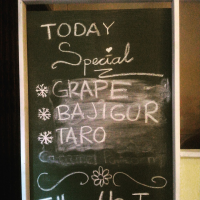 TODAY
Special
GRAPE
BAJIGUR
TARO